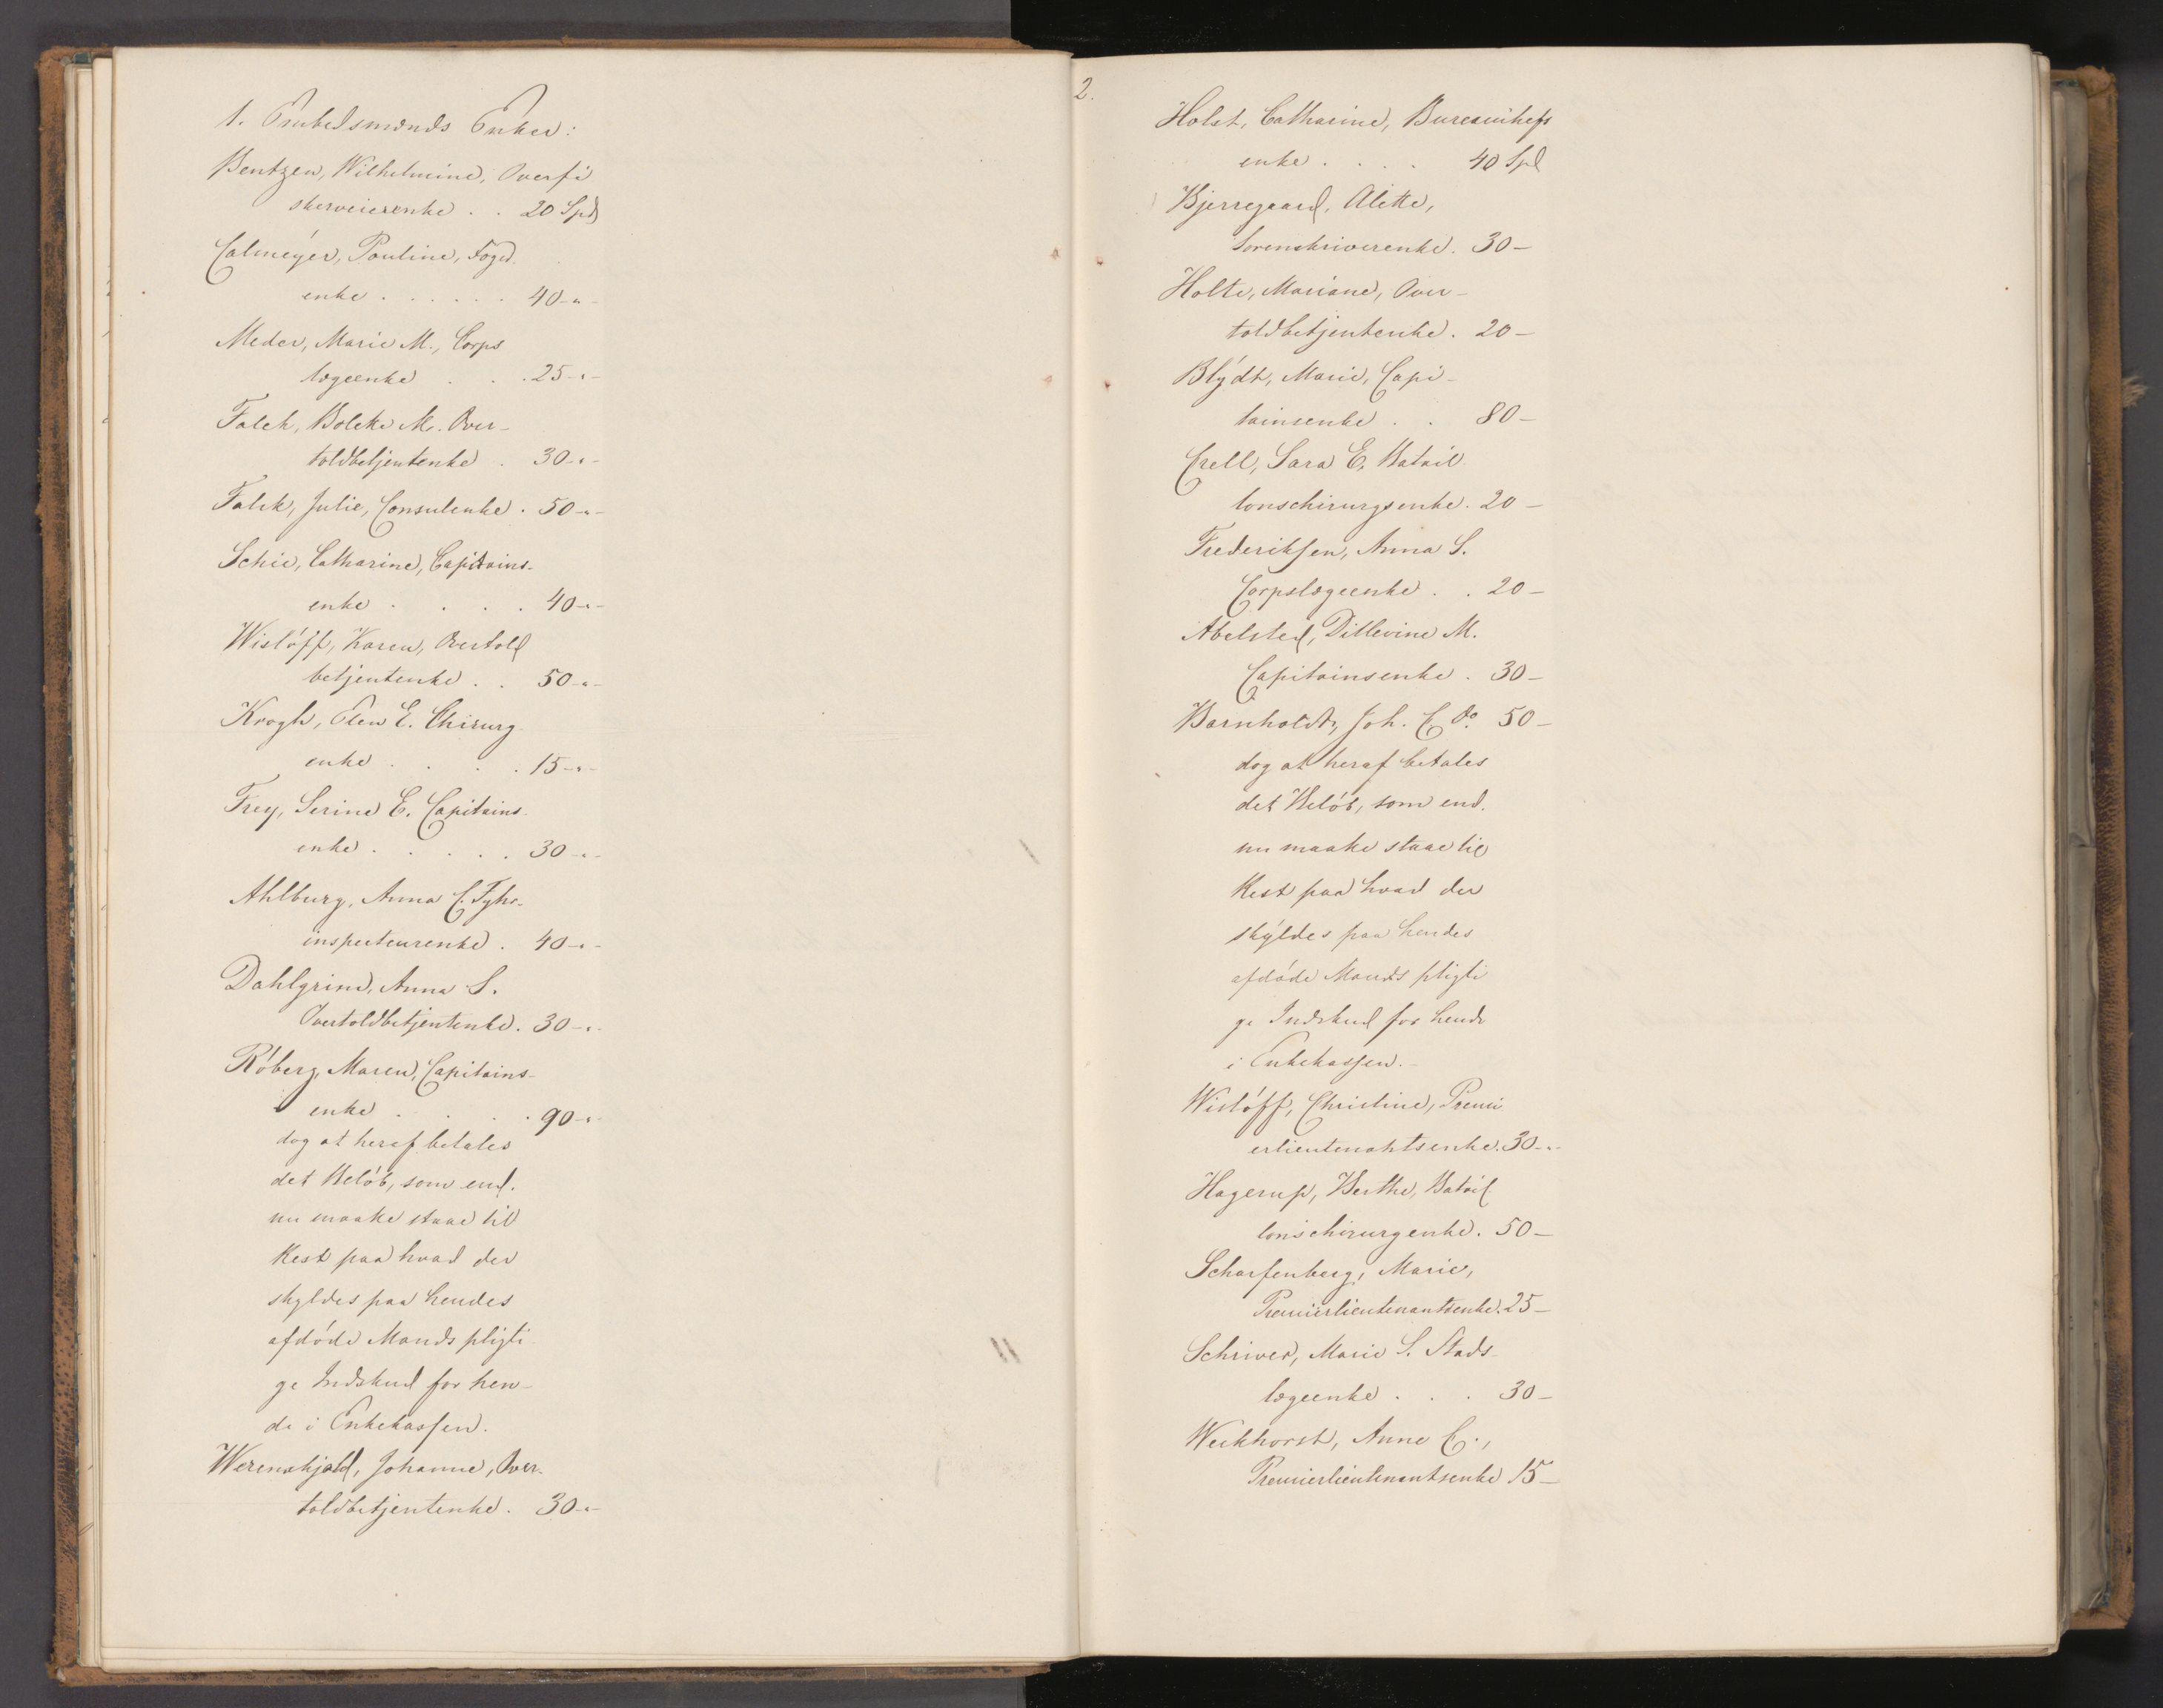 1. Embedsmænds Enker:
Bentzen, Wilhelmine, Overfi
skerveierenke . . 20 Spd
Calmeyer, Pauline, Foged.
enke . . . . . . 40-"-
Meder, Marie M., Corps
lægeenke . . . 25-"-
Falck, Bolette M. Over-
toldbetjentenke . 30-"-
Falck, Julie, Consulenke . 50-"-
Schie, Catharine, Capitains-
enke . . . . 40-"-
Wisløff, Karen, Overtold
betjentenke . . 50-"-
Krogh, Elen E. Chirurg
enke . . . . 15-"-
Frey, Serine E. Capitains-
enke . . . . . 30-"-
Ahlburg, Anna C. Fyhr-
inspecteurenke . 40-"-
Dahlgrine, Anna S.
Overtoldbetjentenke . 30-"-
Røberg, Maren, Capitains-
enke . . . . 90-"-
dog at heraf betales
det Beløb, som end-
nu maatte staae til
Rest paa hvad der
skyldes paa hendes
afdøde Mands pligti-
ge Indskud for hen-
de i Enkekassen.
Werenskjold, Johanne, Over-
toldbetjentenke . 30-"-
2.
Holst, Catharine, Bureauchefs
enke . . . . 40 Spd
Bjerregaard, Alette,
Sorenskriverenke . 30-
Holte, Mariane, Over-
toldbetjentenke . 20-
Blydt, Marie, Capi-
tainsenke . . 80-
Crell, Sara E. Batail
lonschirurgsenke . 20-
Frederiksen, Anna S.
Corpslægeenke . . 20-
Abelsted, Ditlevine M.
Capitainsenke . 30-
Barnholdt, Joh. C. do. 50-
dog at heraf betales
det Beløb, som end-
nu maatte staae til
Rest paa hvad der
skyldes paa hendes
afdøde Mands pligti
ge Indskud for hende
i Enkekassen.-
Wisløff, Christine, Premi
erlieutenahtsenke. 30-"-
Hagerup, Berthe, Batail
lonschirurgenke . 50-
Scharfenberg, Marie,
Premierlieutenantsenke. 25-
Schriver, Marie S. Stads-
lægeenke . . . 30-
Weckhorst, Anne C.,
Premierlieutenantsenke 15-